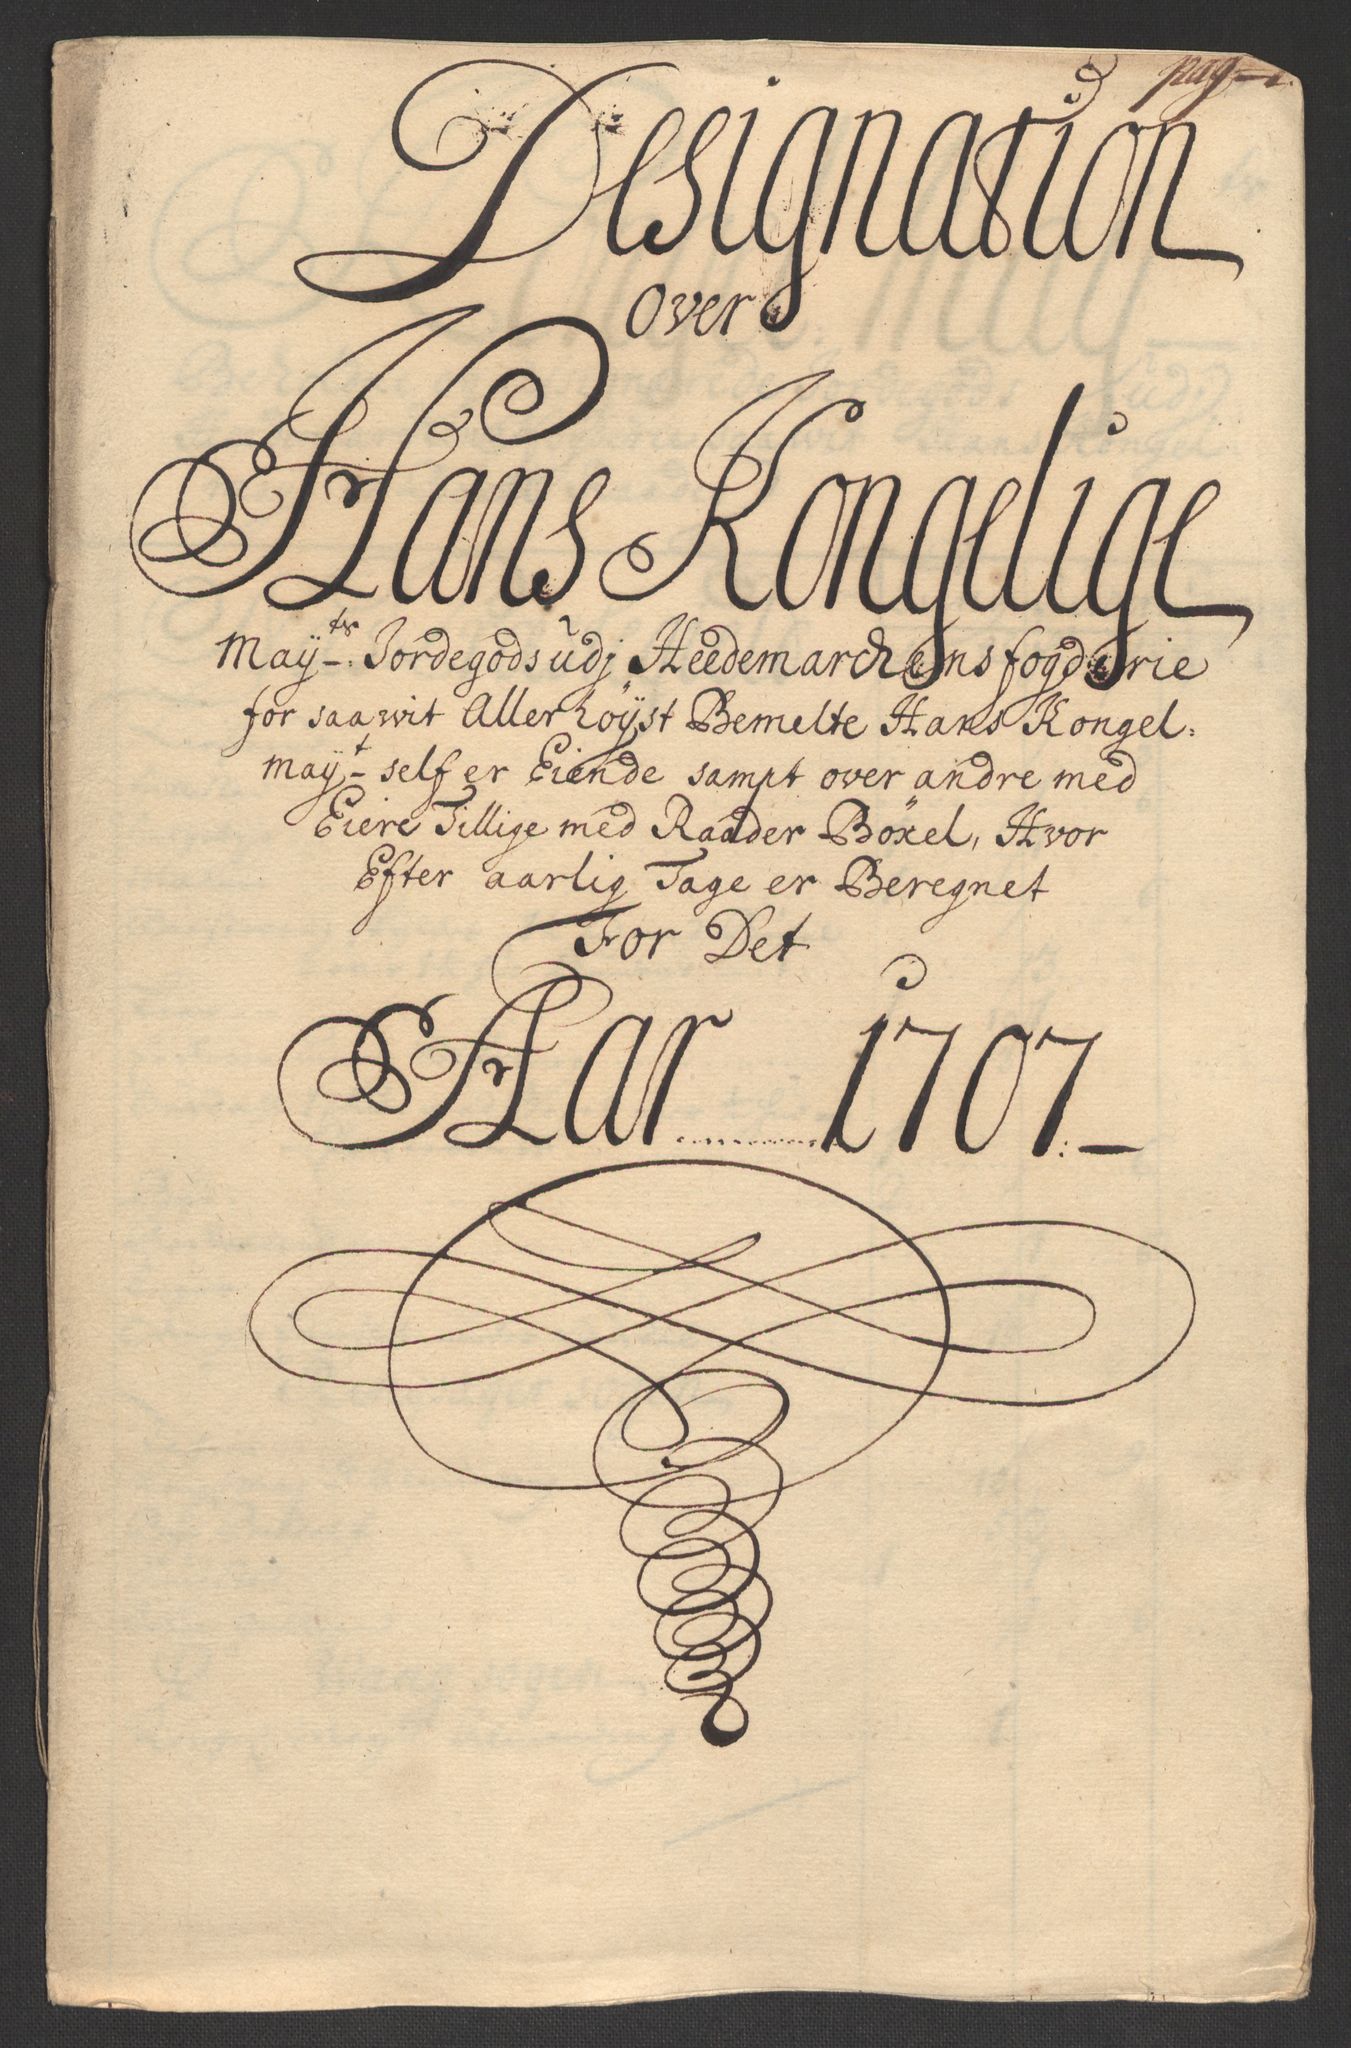 pag—1.
Designation
Over
Hans Kongelige
Maÿ-ts. Jordegods ŭdj Heedemarchens fogderie
for saawit Allerhöÿst Bemelte Hans Kongel:
maÿ-t self er Eiende sampt over andre med
Eiere Tillige med Raader Böxel, Hvor
Efter aarlig Tage er Beregnet
For Det
Aar 1707.—